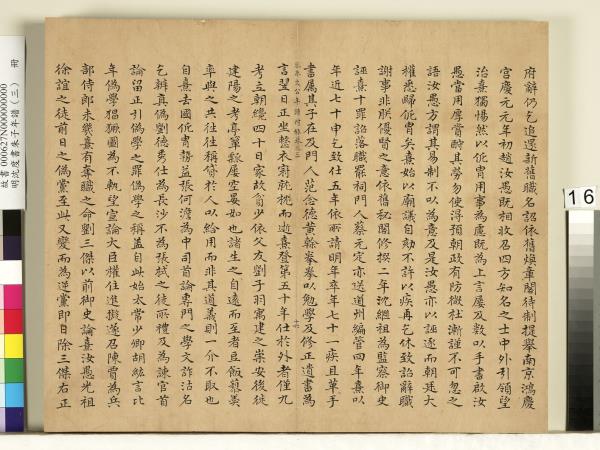 府辭仍乞追還新舊職名詔依舊煥章閣待制提舉南京鴻慶
宮慶元元年初趙汝愚既相收召四方知名之士中外引領望
治熹獨惕然以侂胄用事為慮既為上言屢及數以手書啟汝
愚當用厚賞酬其勞勿使得預朝政有防微杜漸謹不可忽之
語汝愚方謂其易制不以為意及是汝愚亦以誣逐而朝廷大
權悉歸侂胄矣熹始以廟議自劾不許以疾再乞休致詔辭職
謝事非朕優賢之意依舊秘閣修撰二年沈繼祖為監察御史
誣熹十罪詔落職罷祠門人蔡元定亦送道州編管四年熹以
年近七十申乞致仕五年依所請明年卒年七十一疾且革手
書屬其子在及門人范念德黃榦拳拳以勉學及修正遺書為
言翌日正坐整衣冠就枕而逝熹登第五十年仕於外者僅九
考立朝纔四十日家故貧少依父友劉子羽寓建之崇安後徙
建陽之考亭簞瓢屢空晏如也諸生之自遠而至者豆飯藜羹
率與之共往往稱貸於人以給用而非其道義則一介不取也
自熹去國侂胄勢益張何澹為中司首論專門之學文詐沽名
乞辨真偽劉德秀仕為長沙不為張栻之徒所禮及為諫官首
論留正引偽學之罪偽學之稱蓋自此始太常少卿胡紘言比
年偽學猖獗圖為不軌望宣諭大臣權住進擬遂召陳賈為兵
部侍郎未幾熹有奪職之命劉三傑以前御史論熹汝愚光祖
徐誼之徒前日之偽黨至此又變而為逆黨即日除三傑右正
故書000627N000000000
朱子年譜(三)
16